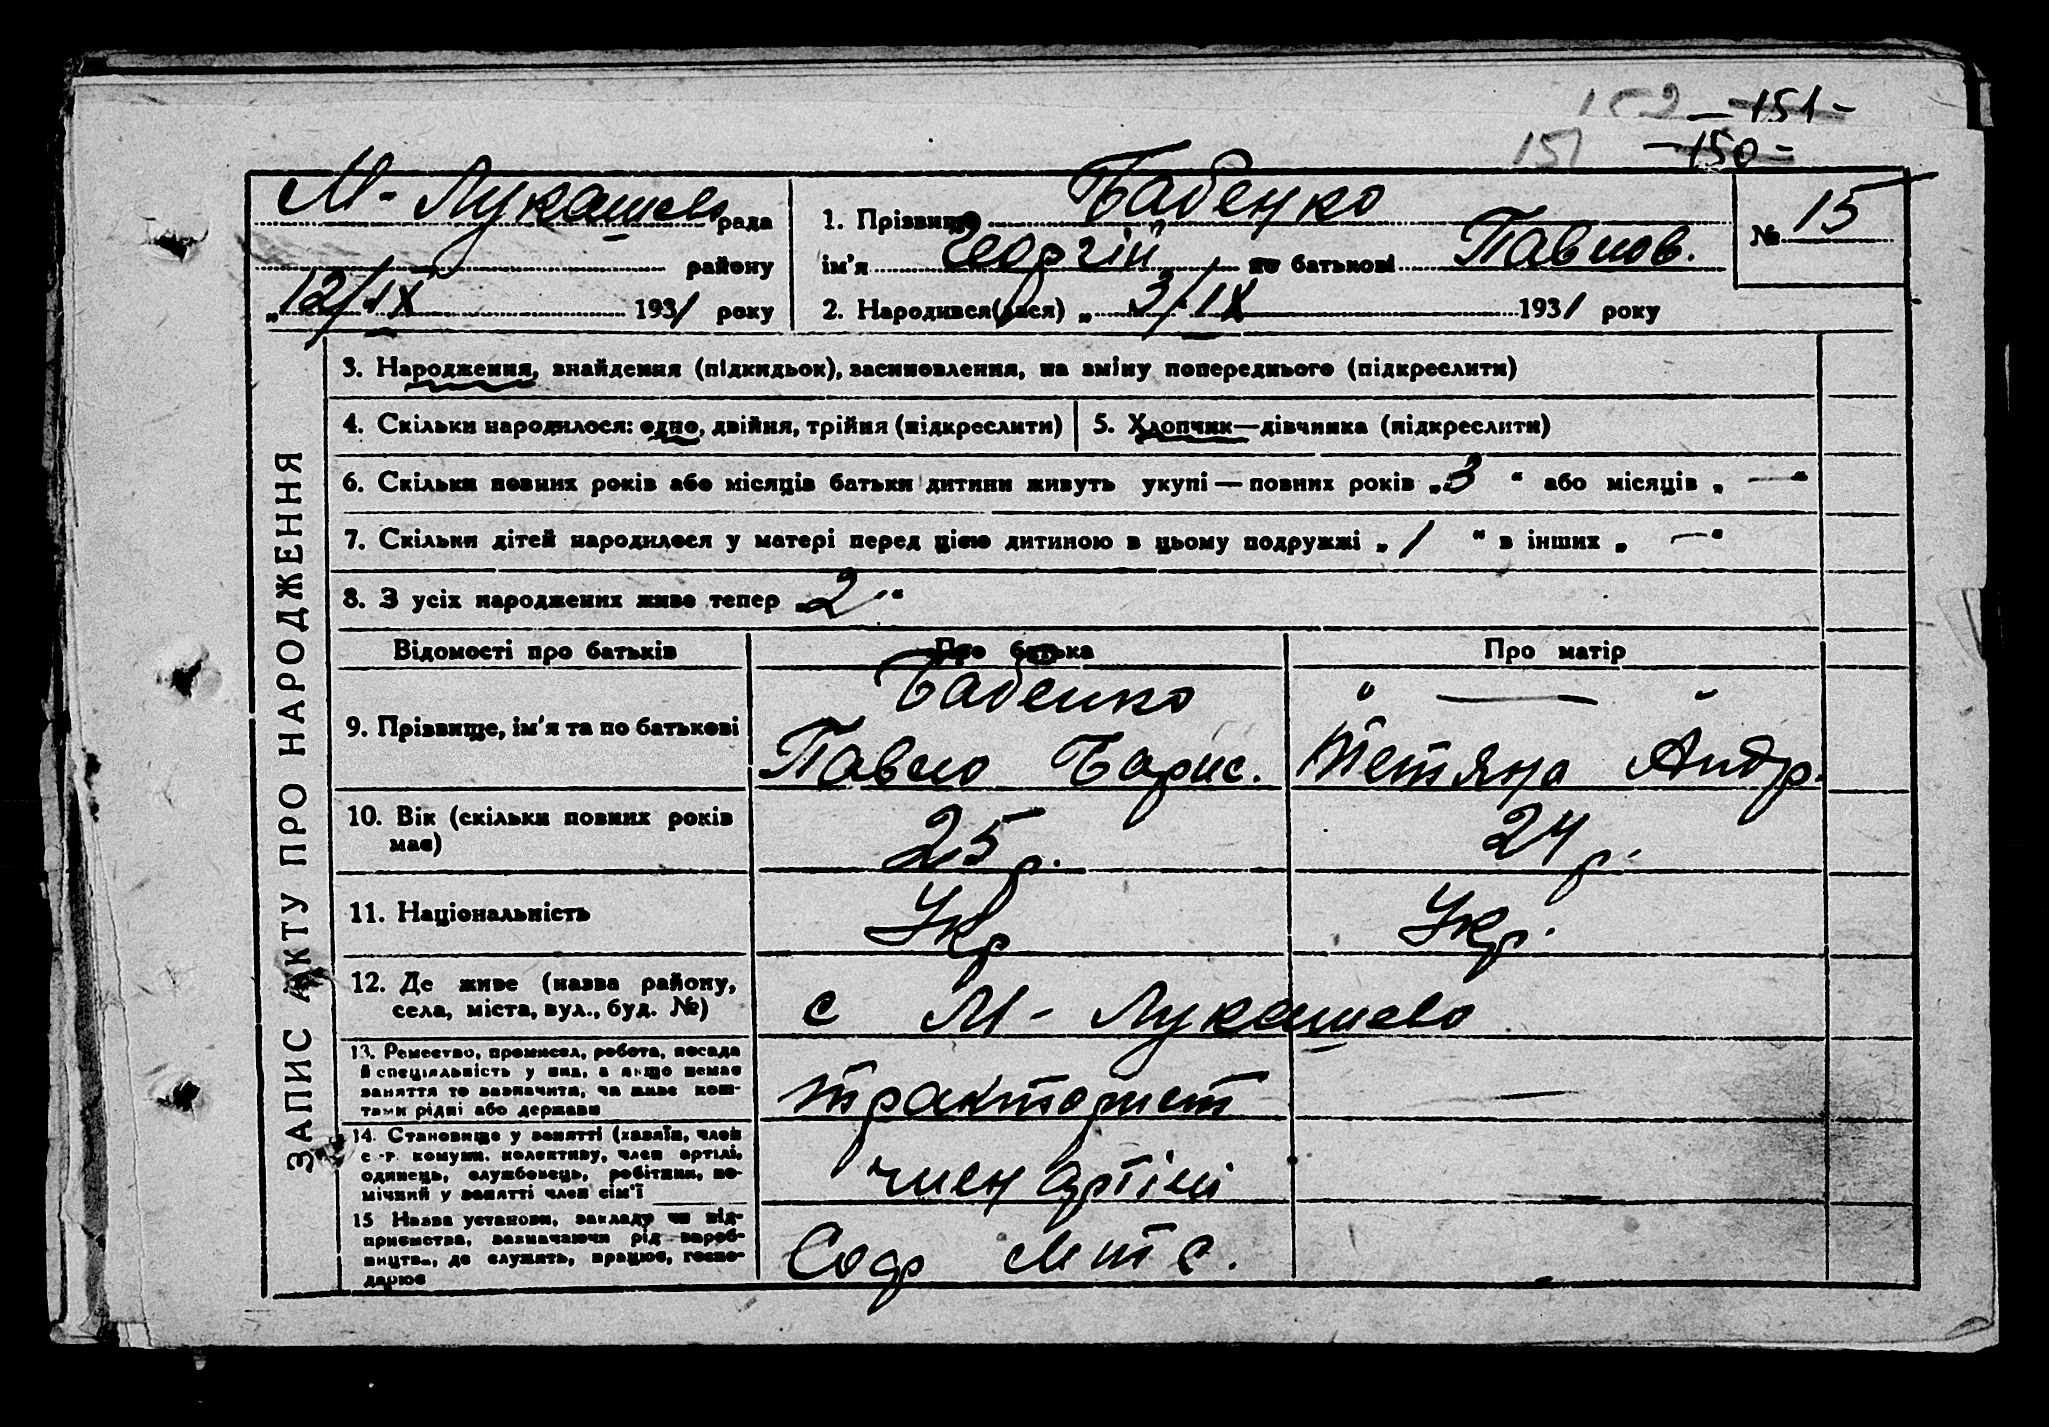 152 - 151 -
151 - 150 -
М - Лукашево рада
району
„ 12/IX 1931 року
1. Прізвище Бабенко
ім'я Георгій по батькові Павлов.
2. Народився(лася) „ 3/IX 1931 року
№ 15
ЗАПИС АКТУ ПРО НАРОДЖЕННЯ
3. Народження, знайдення (підкидьок), засиновлення, на зміну попереднього (підкреслити)
4. Скільки народилося: одно, двійня, трійня (підкреслити)
5. Хлопчик—дівчинка (підкреслити)
6. Скільки повних років або місяців батьки дитини живуть укупі — повних років „ 3 “ або місяців „ — “
7. Скільки дітей народилося у матері перед цією дитиною в цьому подружжі „ 1 “ в інших „ — “
8. З усіх народжених живе тепер „ 2 “
Відомості про батьків
Про батька
Про матір
9. Прізвище, ім'я та по батькові
Бабенко
Павло Барис.
" — "
Тетяна Андр.
10. Вік (скільки повних років
має)
25 р.
24 р.
11. Національність
Укр
Укр.
12. Де живе (назва району,
села, міста, вул., буд. №)
с М - Лукашево
13. Ремество, промисел, робота, посада
й спеціяльність у ній, а якщо немає
заняття то зазначити, чи живе кош-
тами рідні або держави
тракторист
—
14. Становище у занятті (хазяїн, член
с.-г. комуни, колективу, член артілі,
одинець, службовець, робітник, по-
мічний у занятті член сім'ї
член артілі
—
15 Назва установи, закладу чи під-
приємства, зазначаючи рід вироб-
ництва, де служить, працює, госпо-
дарює
Соф МТС.